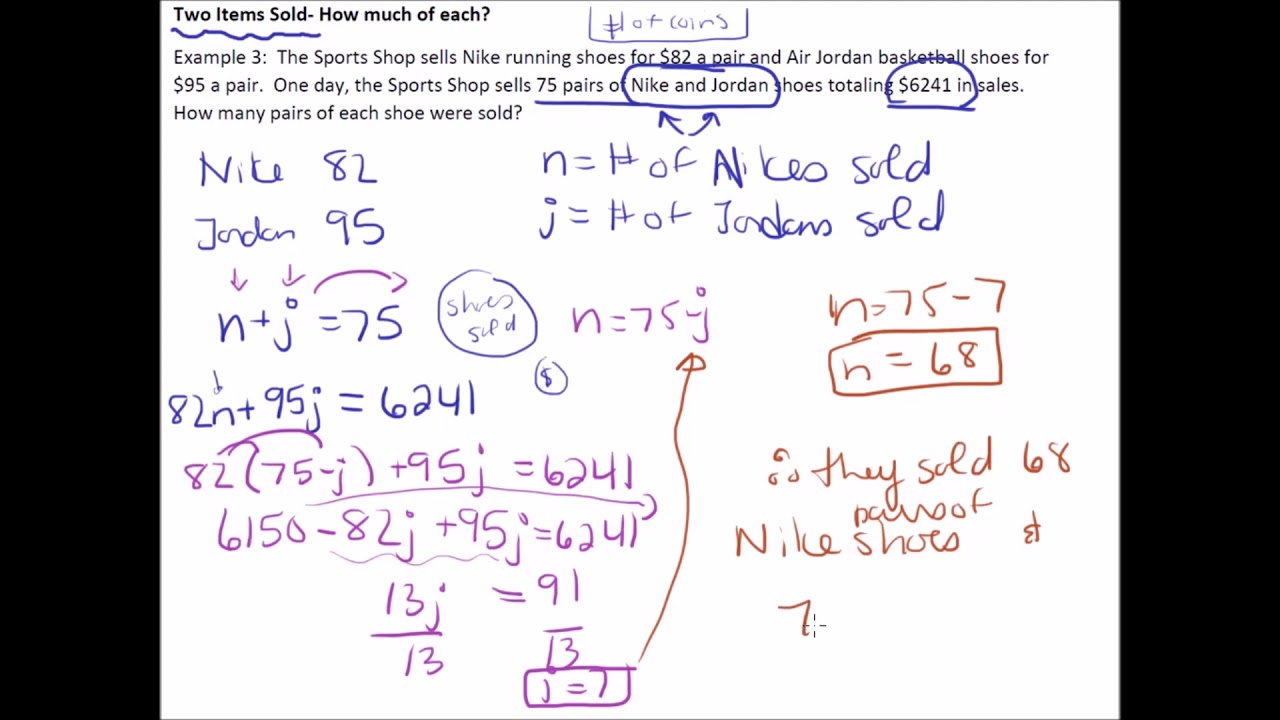 Two Items Sold- How much of each?
# of coins
Example 3:  The Sports Shop sells Nike running shoes for $82 a pair and Air Jordan basketball shoes for
$95 a pair.  One day, the Sports Shop sells 75 pairs of Nike and Jordan shoes totaling $6241 in sales.
How many pairs of each shoe were sold?
Nike 82
Jordan 95
n = # of Nikes sold
j = # of Jordans sold
n + j = 75
shoes
sold
82n + 95j = 6241
$
82(75-j) + 95j = 6241
6150 - 82j + 95j = 6241
13j = 91
13 13
j = 7
n = 75 - j
n = 75 - 7
n = 68
∴ they sold 68
pairs of
Nike shoes &
7